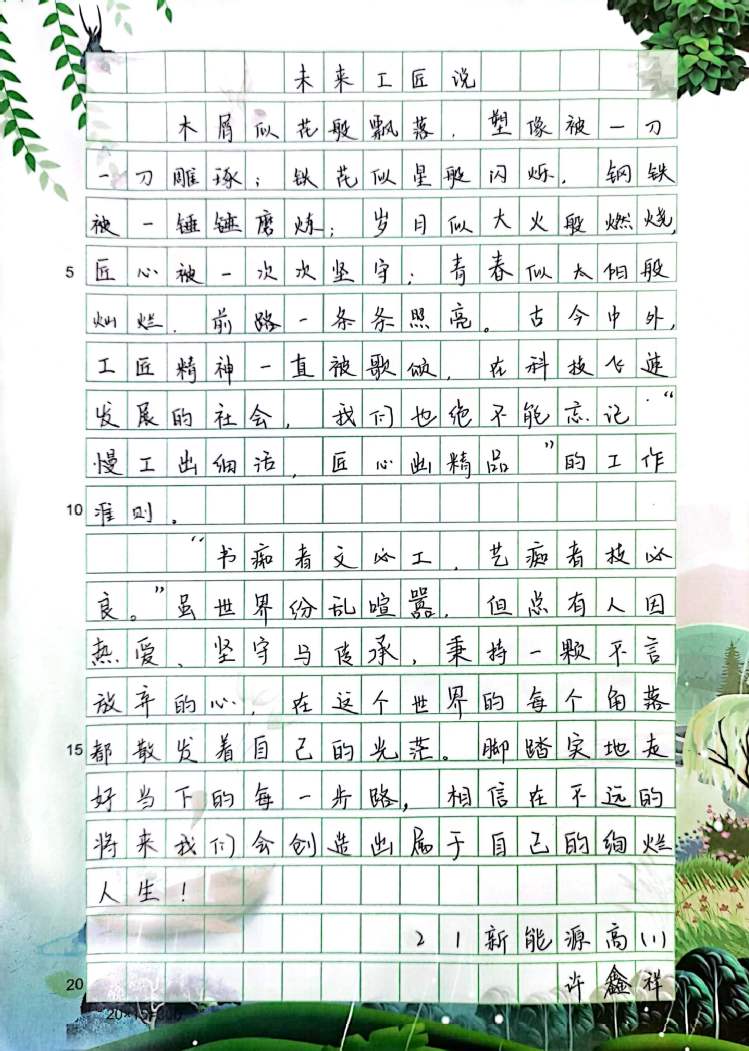 未来工匠说
木屑似花般飘落，塑像被一刀
一刀雕琢；铁花似星般闪烁，钢铁
被一锤锤磨炼；岁月似大火般燃烧，
5 匠心被一次次坚守；青春似太阳般
灿烂，前路一条条照亮。古今中外，
工匠精神一直被歌颂，在科技飞速
发展的社会，我们也绝不能忘记“
慢工出细活，匠心出精品”的工作
10 准则。
“书痴者文必工，艺痴者技必
良。”虽世界纷乱喧嚣，但总有人因
热爱、坚守与传承，秉持一颗不言
放弃的心，在这个世界的每个角落
15 都散发着自己的光茫。脚踏实地走
好当下的每一步路，相信在不远的
将来我们会创造出属于自己的绚烂
人生！
21新能源高(1)
20 许鑫祥